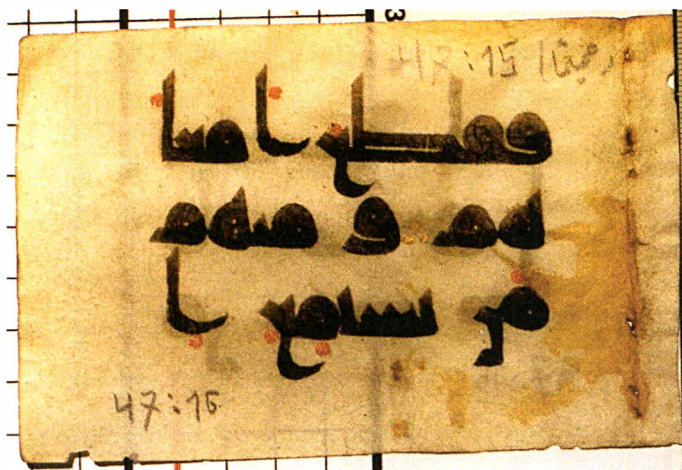 47:15
فقطع امعا
هم و منهم
من يستمع ا
47:16